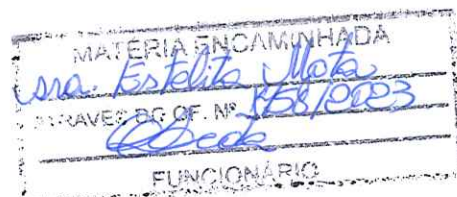 MATÉRIA ENCAMINHADA
sra. Estelita Mota
ATRAVES DO OF. Nº /2023
FUNCIONÁRIO